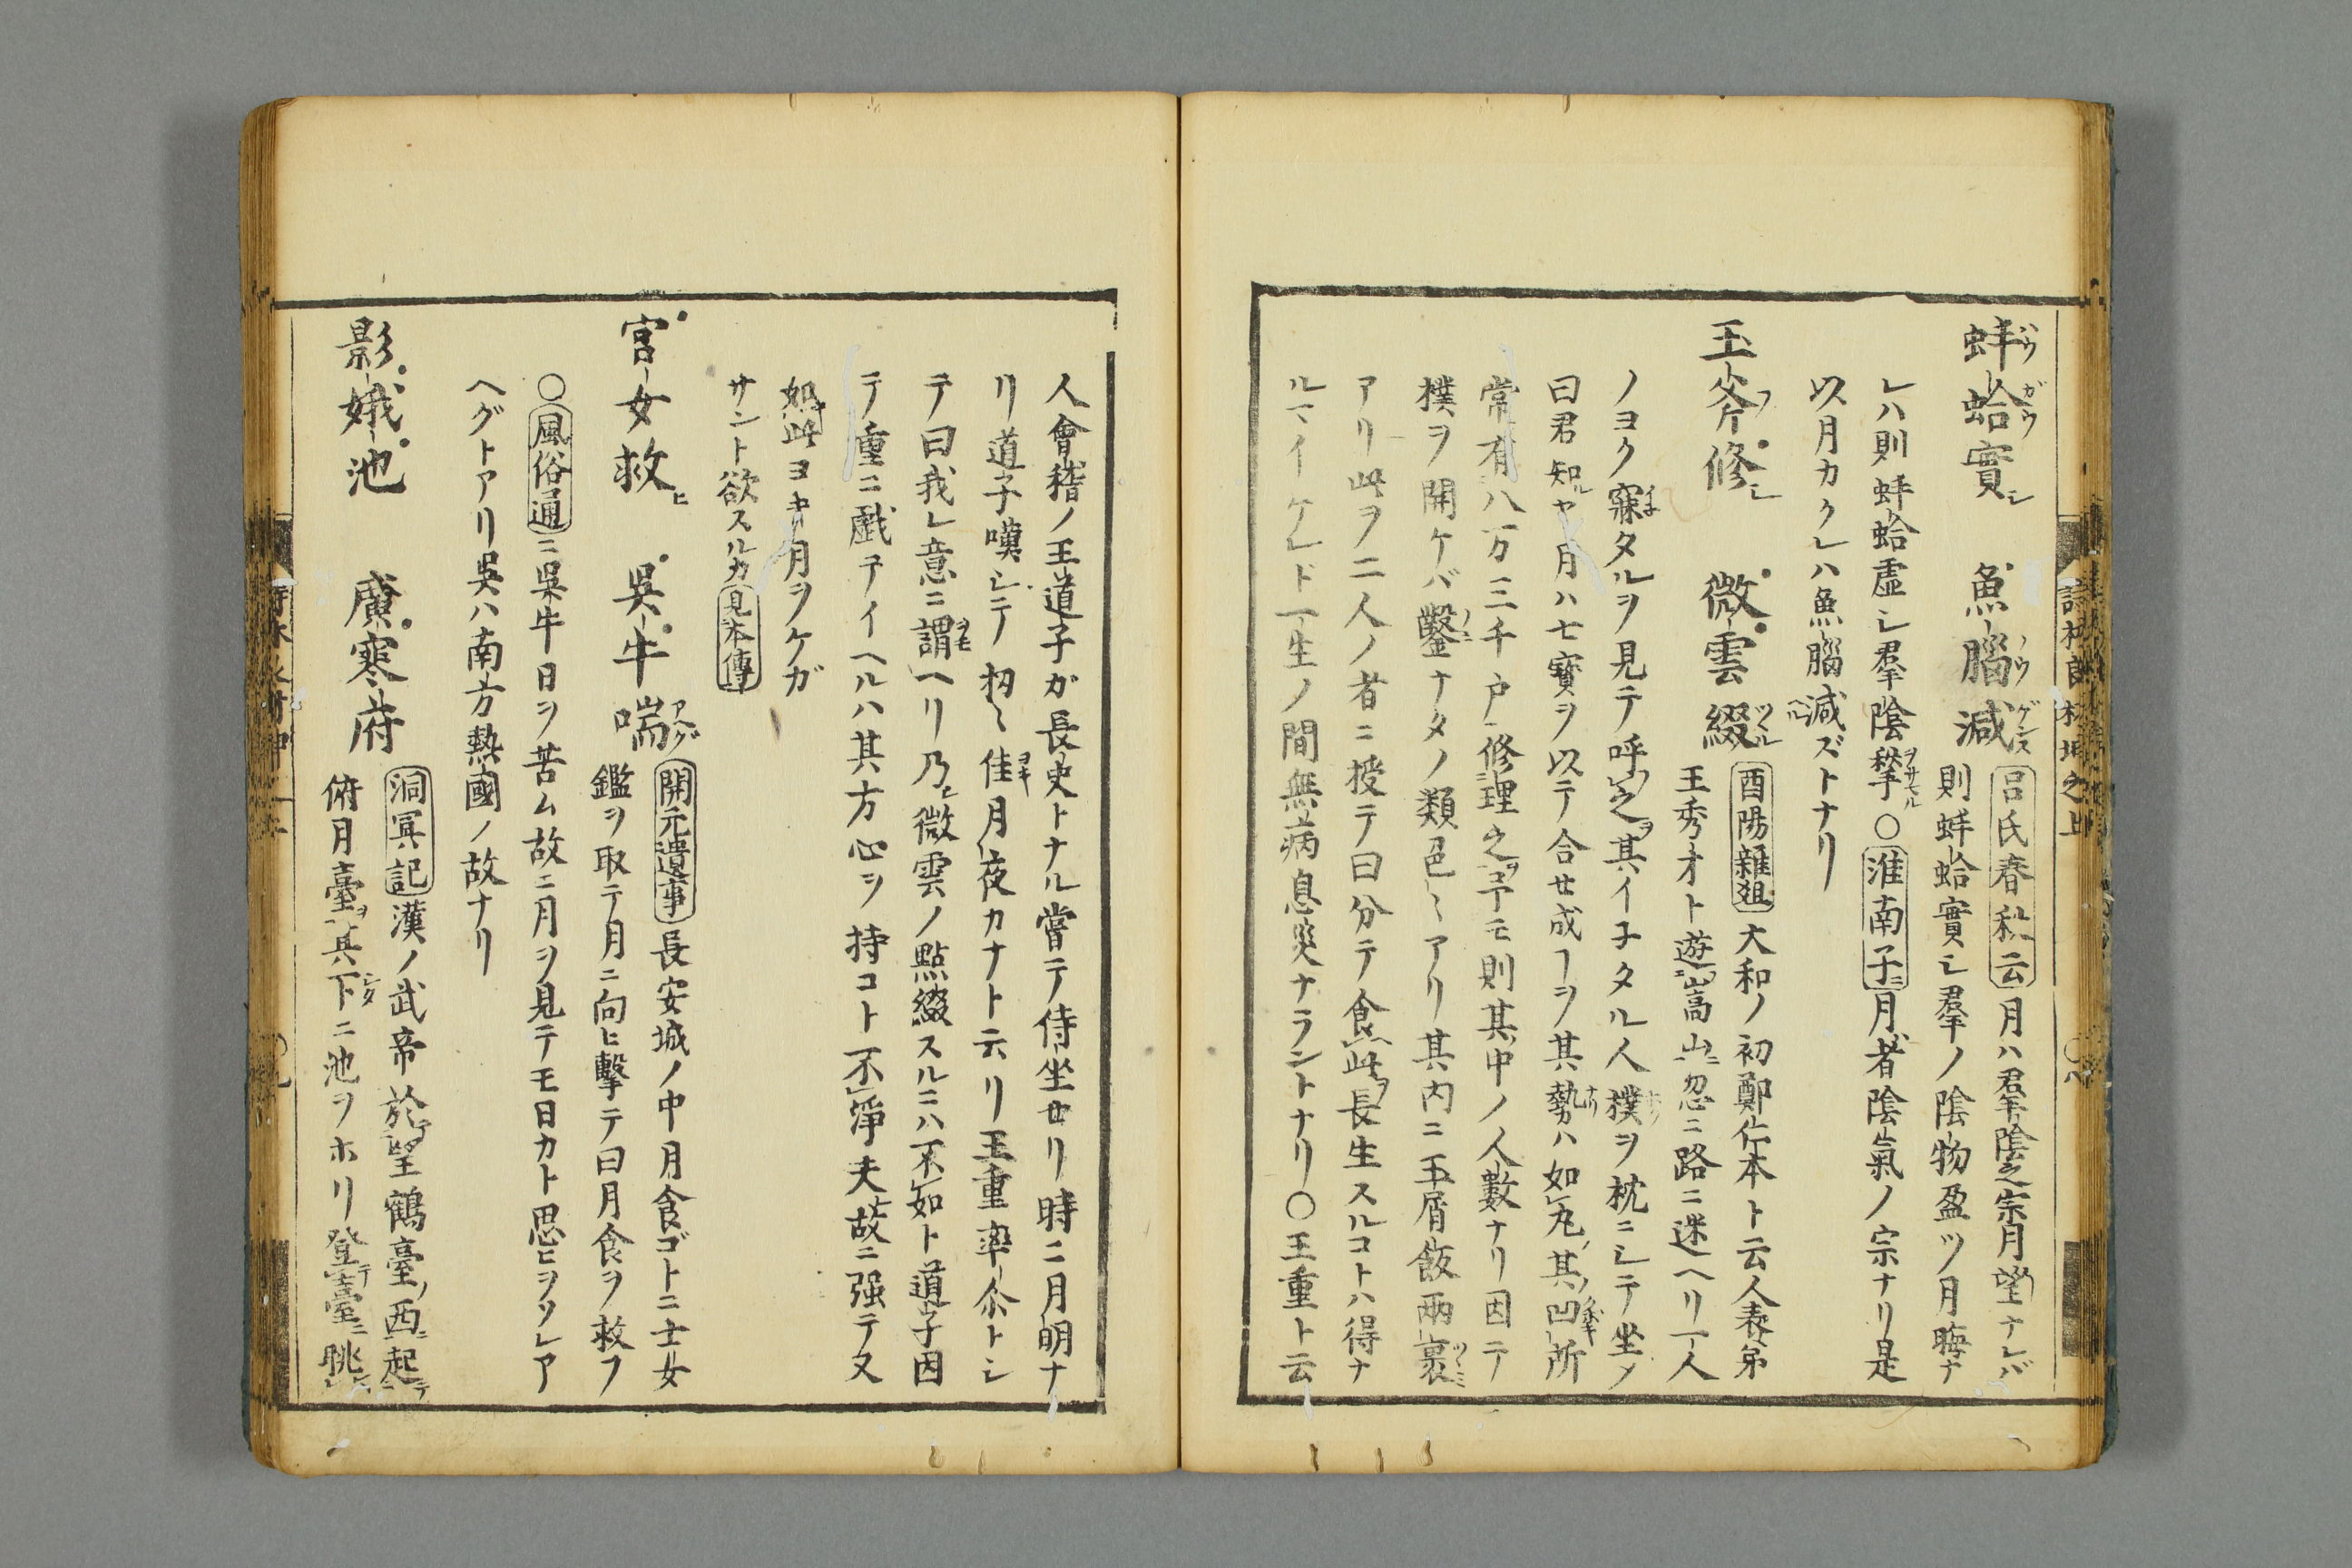 蚌蛤實シ　魚腦減ゲンズ　呂氏春秋云月ハ羣陰之宗月望ナレバ
則蚌蛤實シ羣ノ陰物盈ツ月晦ナ
レハ則蚌蛤虛シ羣陰揫ヲサマル〇淮南子ニ月者陰氣ノ宗ナリ是
以月カクレハ魚腦減ズトナリ
玉斧修シ　微雲綴ツヾル　酉陽雜俎大和ノ初鄭仁本ト云人表弟
王秀才ト遊嵩山ニ忽ニ路ニ迷ヘリ一人
ノヨク寐タルヲ見テ呼之其イ子タル人撲ヲ枕ニシテ坐ノ
曰君知ルヤ月ハ七寳ヲ以テ合セ成ヿヲ其勢ハ如丸其凹所
常有八万三千戸修理之ヿモ則其中ノ人數ナリ因テ
撲ヲ開ケバ鑿ナタノ類色〻アリ其内ニ玉屑飯兩裹
アリ此ヲ二人ノ者ニ授テ曰分テ食此長生スルコトハ得ナ
ルマイケレド一生ノ間無病息災ナラントナリ〇王重ト云
人會稽ノ王道子ガ長史トナル嘗テ侍坐セリ時ニ月明ナ
リ道子嘆シテ扨〻佳月夜カナト云リ王重率尒トシ
テ曰我レ意ニ謂ヘリ乃微雲ノ點綴スルニハ不如ト道子因
テ重ニ戯テイヘルハ其方心ヲ持コト不淨夫故ニ强テ又
如此ヨキ月ヲケガ
サント欲スルカ見本傳
宮女救ヒ　吳牛喘アヘグ　開元遺事長安城ノ中月食ゴトニ士女
鑑ヲ取テ月ニ向ヒ擊テ曰月食ヲ救フ
〇風俗通ニ呉牛日ヲ苦ム故ニ月ヲ見テモ日カト思ヒヲソレア
ヘグトアリ吳ハ南方熱國ノ故ナリ
影娥池　廣寒府　洞冥記漢ノ武帝於望鶴臺ノ西ニ起テ
俯月臺ヲ其下ニ池ヲホリ登臺ニ眺